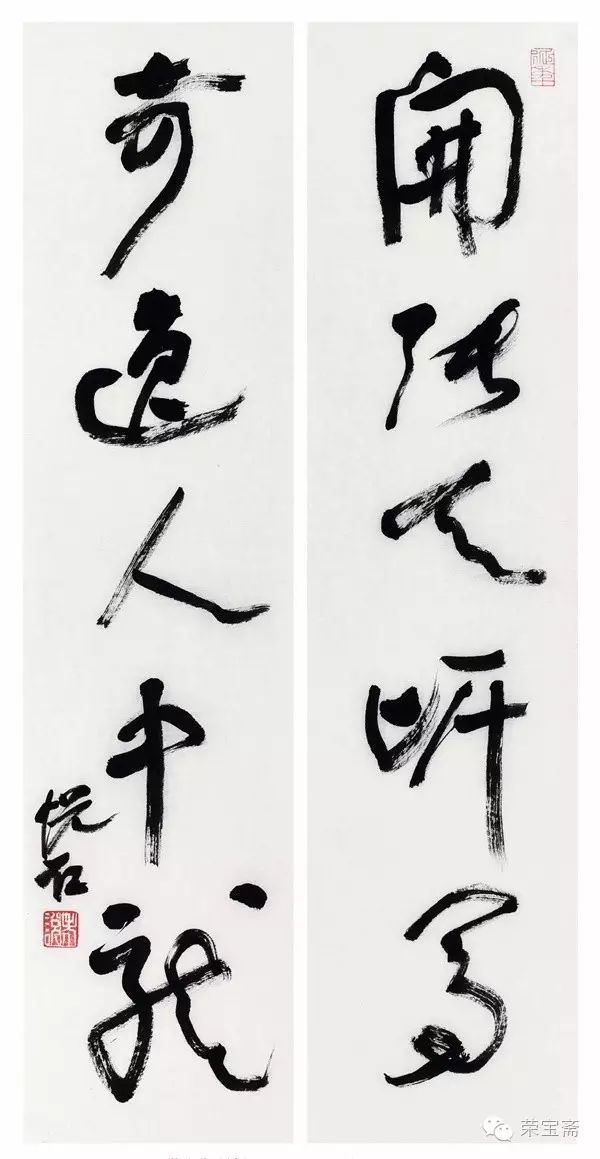 開張天岸馬
奇逸人中龍
悦石
荣宝斋